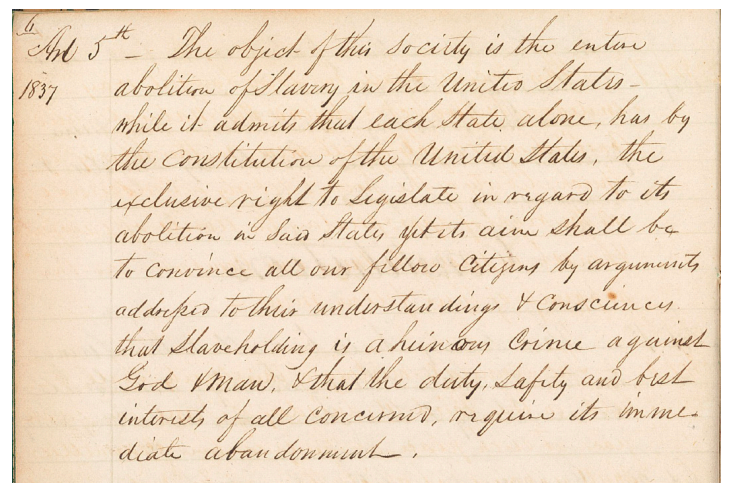 6
Art 5th - The object of this society is the entire
1837
abolition of Slavery in the United States -
while it admits that each State alone, has by
the constitution of the United States, the
exclusive right to Legislate in regard to its
abolition in said States yet its aim shall be
to convince all our fellow Citizens by arguments
addressed to their understandings & consciences
that Slaveholding is a heinous Crime against
God & man, & that the duty, safety and best
interests of all concerned, require its imme-
diate abandonment.